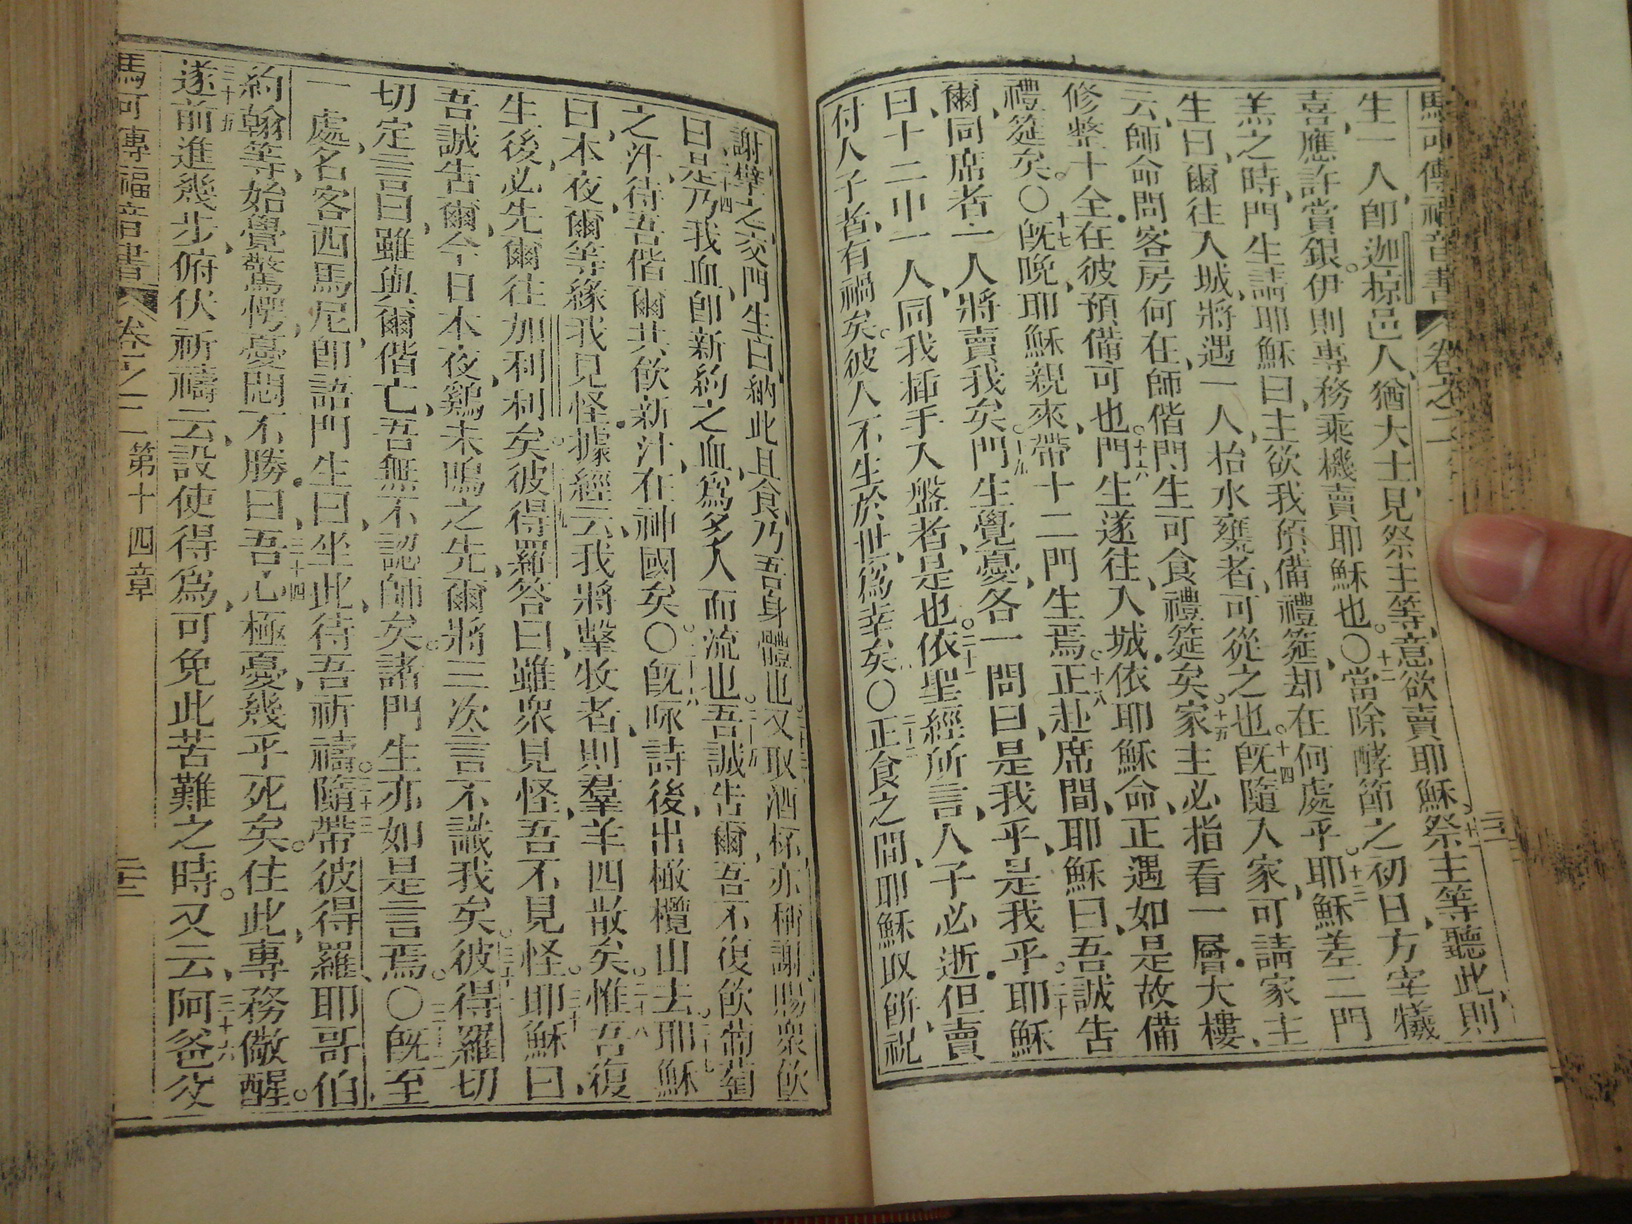 馬可傳福音書 卷之二
生一人卽迦掠邑人猶大士見祭主等意欲賣耶穌祭主等聽此則
喜應許賞銀伊則專務乘機賣耶穌也○十二當除酵節之初日方宰犧
羔之時門生請耶穌曰主欲我預備禮筵却在何處乎十三耶穌差二門
生曰爾往入城將遇一人抬水甕者可從之也十四旣隨入家可請家主
云師命問客房何在師偕門生可食禮筵矣十五家主必指看一層大樓
修整十全在彼預備可也十六門生遂往入城依耶穌命正遇如是故備
禮筵矣○十七旣晚耶穌親來帶十二門生焉十八正赴席間耶穌曰吾誠告
爾同席者一人將賣我矣十九門生覺憂各一問曰是我乎是我乎二十耶穌
曰十二中一人同我插手入盤者是也二十一依聖經所言人子必逝但賣
付人子者有禍矣彼人不生於世爲幸矣○二十二正食之間耶穌取餅祝
謝擘之交門生曰納此且食乃吾身體也二十三又取酒杯亦稱謝賜衆飲
二十四曰是乃我血卽新約之血爲多人而流也二十五吾誠告爾吾不復飲葡萄
之汁待吾偕爾共飲新汁在神國矣○二十六旣咏詩後出橄欖山去二十七耶穌
曰本夜爾等緣我見怪據經云我將擊牧者則羣羊四散矣二十八惟吾復
生後必先爾往加利利矣二十九彼得羅答曰雖衆見怪吾不見怪三十耶穌曰
吾誠告爾今日本夜鷄未鳴之先爾將三次言不識我矣三十一彼得羅切
切定言曰雖與爾偕亡吾無不認師矣諸門生亦如是言焉○三十二旣至
一處名客西馬尼卽語門生曰坐此待吾祈禱三十三隨帶彼得羅耶哥伯
約翰等始覺驚愕憂悶不勝三十四曰吾心極憂幾乎死矣住此專務儆醒
三十五遂前進幾步俯伏祈禱云設使得爲可免此苦難之時三十六又云阿爸父
馬可傳福音書 卷之二 第十四章